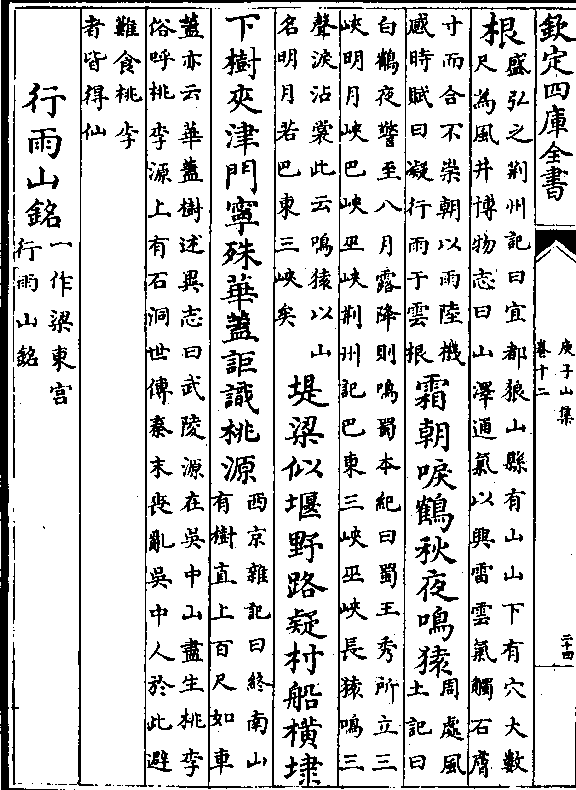 欽定四庫全書
庾子山集
卷十二
二十四
根
盛弘之荆州記曰宜都狼山縣有山山下有穴大數
尺為風井博物志曰山澤通氣以興雷雲氣觸石膚
寸而合不崇朝以雨陸機
感時賦曰凝行雨于雲根
霜朝唳鶴秋夜鳴猿
周處風
土記曰
白鶴夜警至八月露降則鳴蜀本紀曰蜀王秀所立三
峽明月峽巴峽巫峽荆州記巴東三峽巫峽長猿鳴三
聲淚沾裳此云鳴猿以山
名明月若巴東三峽矣
堤梁似堰野路疑村船横埭
下樹夾津門寧殊華蓋詎識桃源
西京雜記曰終南山
有樹直上百尺如車
蓋亦云華蓋樹述異志曰武陵源在吳中山盡生桃李
俗呼桃李源上有石洞世傳秦末喪亂吳中人於此避
難食桃李
者皆得仙
行雨山銘
一作梁東宫
行雨山銘